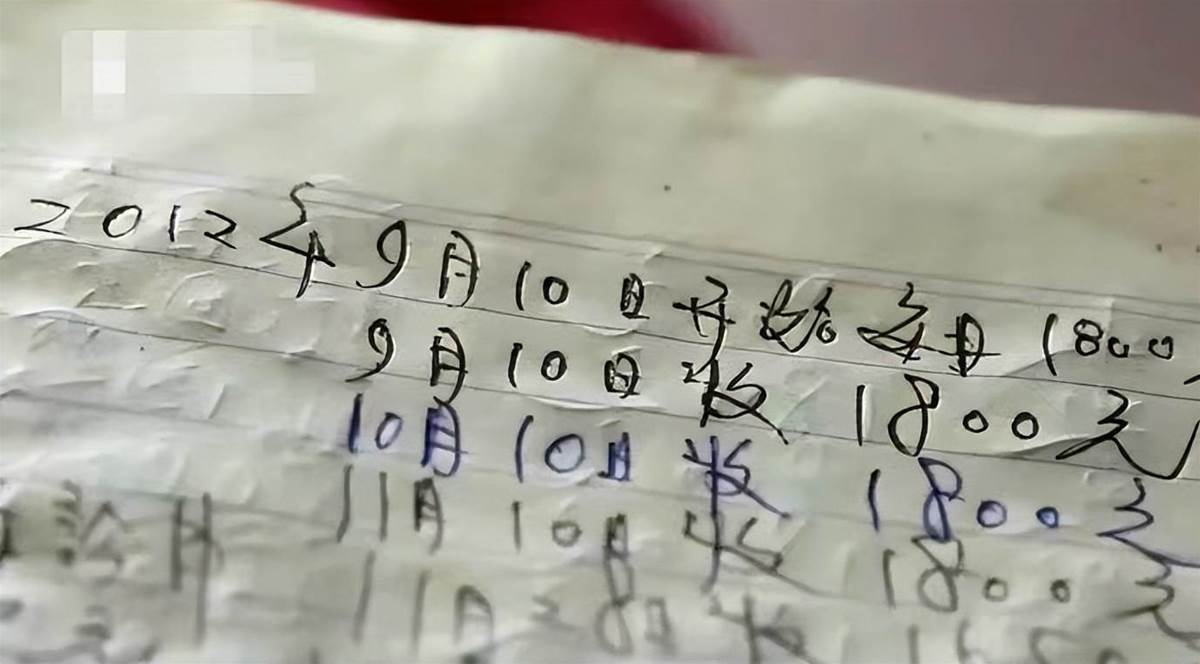 2012年9月10日开始每月1800
9月10日收1800元
10月10日收1800元
11月10日收1800元
11月28日收